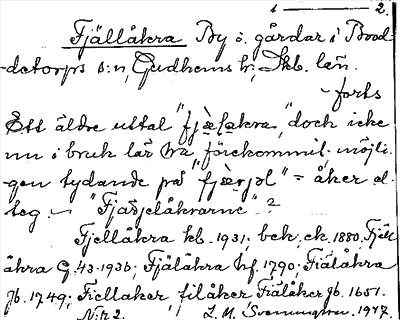 1 ——— 2.
Fjällåkra By o. gårdar i Brod-
detorps s:n, Gudhems hr, Skb. län.
- forts
Ett äldre uttal "fjælakra", doch icke
nu i bruk lär ha förekommit; möjli-
gen tydande på "fjærjol" = åker el.
teg — "Fjärjelåkrarne"?
Fjellåkra kb. 1931; bek. ek. 1880. Fjell
åkra G. 43. 1936; Fjälåkra hf. 1790; Fiälåkra
jb. 1749; Fiellaker, filåker Fiälåker jb. 1651.
N:r 2. L. M. Svenungsson. 1947.